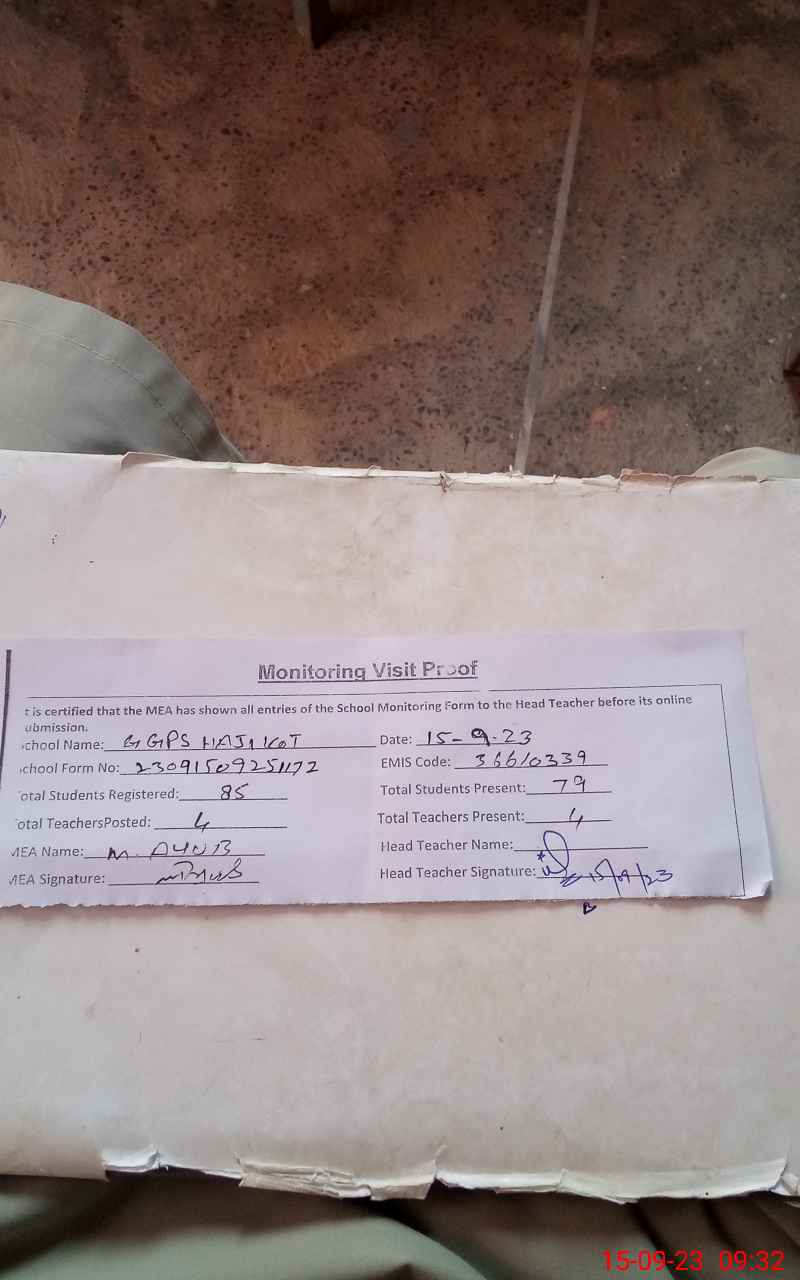 Monitoring Visit Proof
t is certified that the MEA has shown all entries of the School Monitoring Form to the Head Teacher before its online
ubmission.
chool Name: GGPS HAJI KOT Date: 15-9-23
chool Form No: 23091509251172 EMIS Code: 36610339
otal Students Registered: 85 Total Students Present: 79
otal TeachersPosted: 4 Total Teachers Present: 4
MEA Name: M. AYUB Head Teacher Name:
MEA Signature: Head Teacher Signature: 15/09/23
15-09-23 09:32